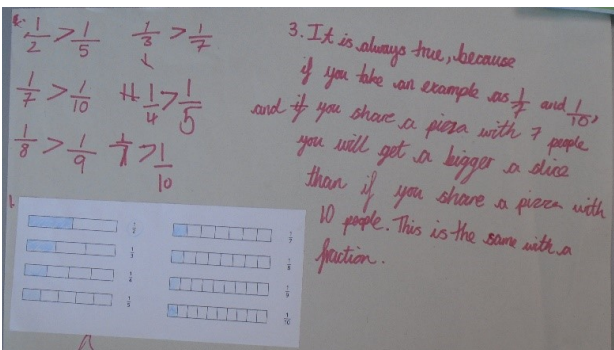 1/2 > 1/5   1/3 > 1/7
1/7 > 1/10   1/4 > 1/5
1/8 > 1/9   1/1 > 1/10
1.
1/2
1/3
1/4
1/5
1/7
1/8
1/9
1/10
3. It is always true, because
if you take an example as 1/7 and 1/10,
and if you share a pizza with 7 people
you will get a bigger a slice
than if you share a pizza with
10 people. This is the same with a
fraction.